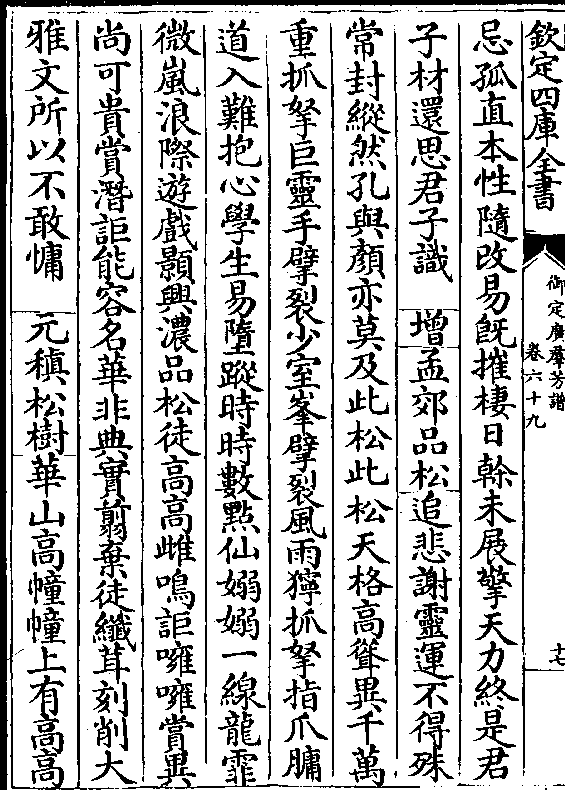 欽定四庫全書
御定廣羣芳譜
卷六十九
十七
忌孤直本性隨改易旣摧棲日榦未展擎天力終是君
子材還思君子識　增孟郊品松追悲謝靈運不得殊
常封縱然孔與顏亦莫及此松此松天格高聳異千萬
重抓拏巨靈手擘裂少室峯擘裂風雨獰抓拏指爪𦟛
道入難抱心學生易墮蹤時時數點仙嫋嫋一線龍霏
微嵐浪際遊戲顥興濃品松徒高高雌鳴詎嗈嗈賞異
尚可貴賞潛詎能容名華非典實翦棄徒纖茸刻削大
雅文所以不敢慵　元稹松樹華山高幢幢上有高高